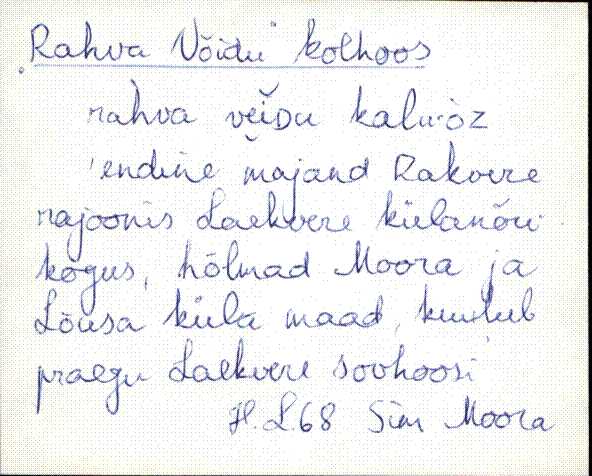 "Rahva Võidu" kolhoos
rahva vɐ̆iᴅu kalu·òz
'endine majand Rakvere
rajoonis Laekvere külanõu-
kogus, hõlmad Moora ja
Lõusa küla maad, kuulub
praegu Laekvere sovhoosi
H. L. 68 Sim Moora